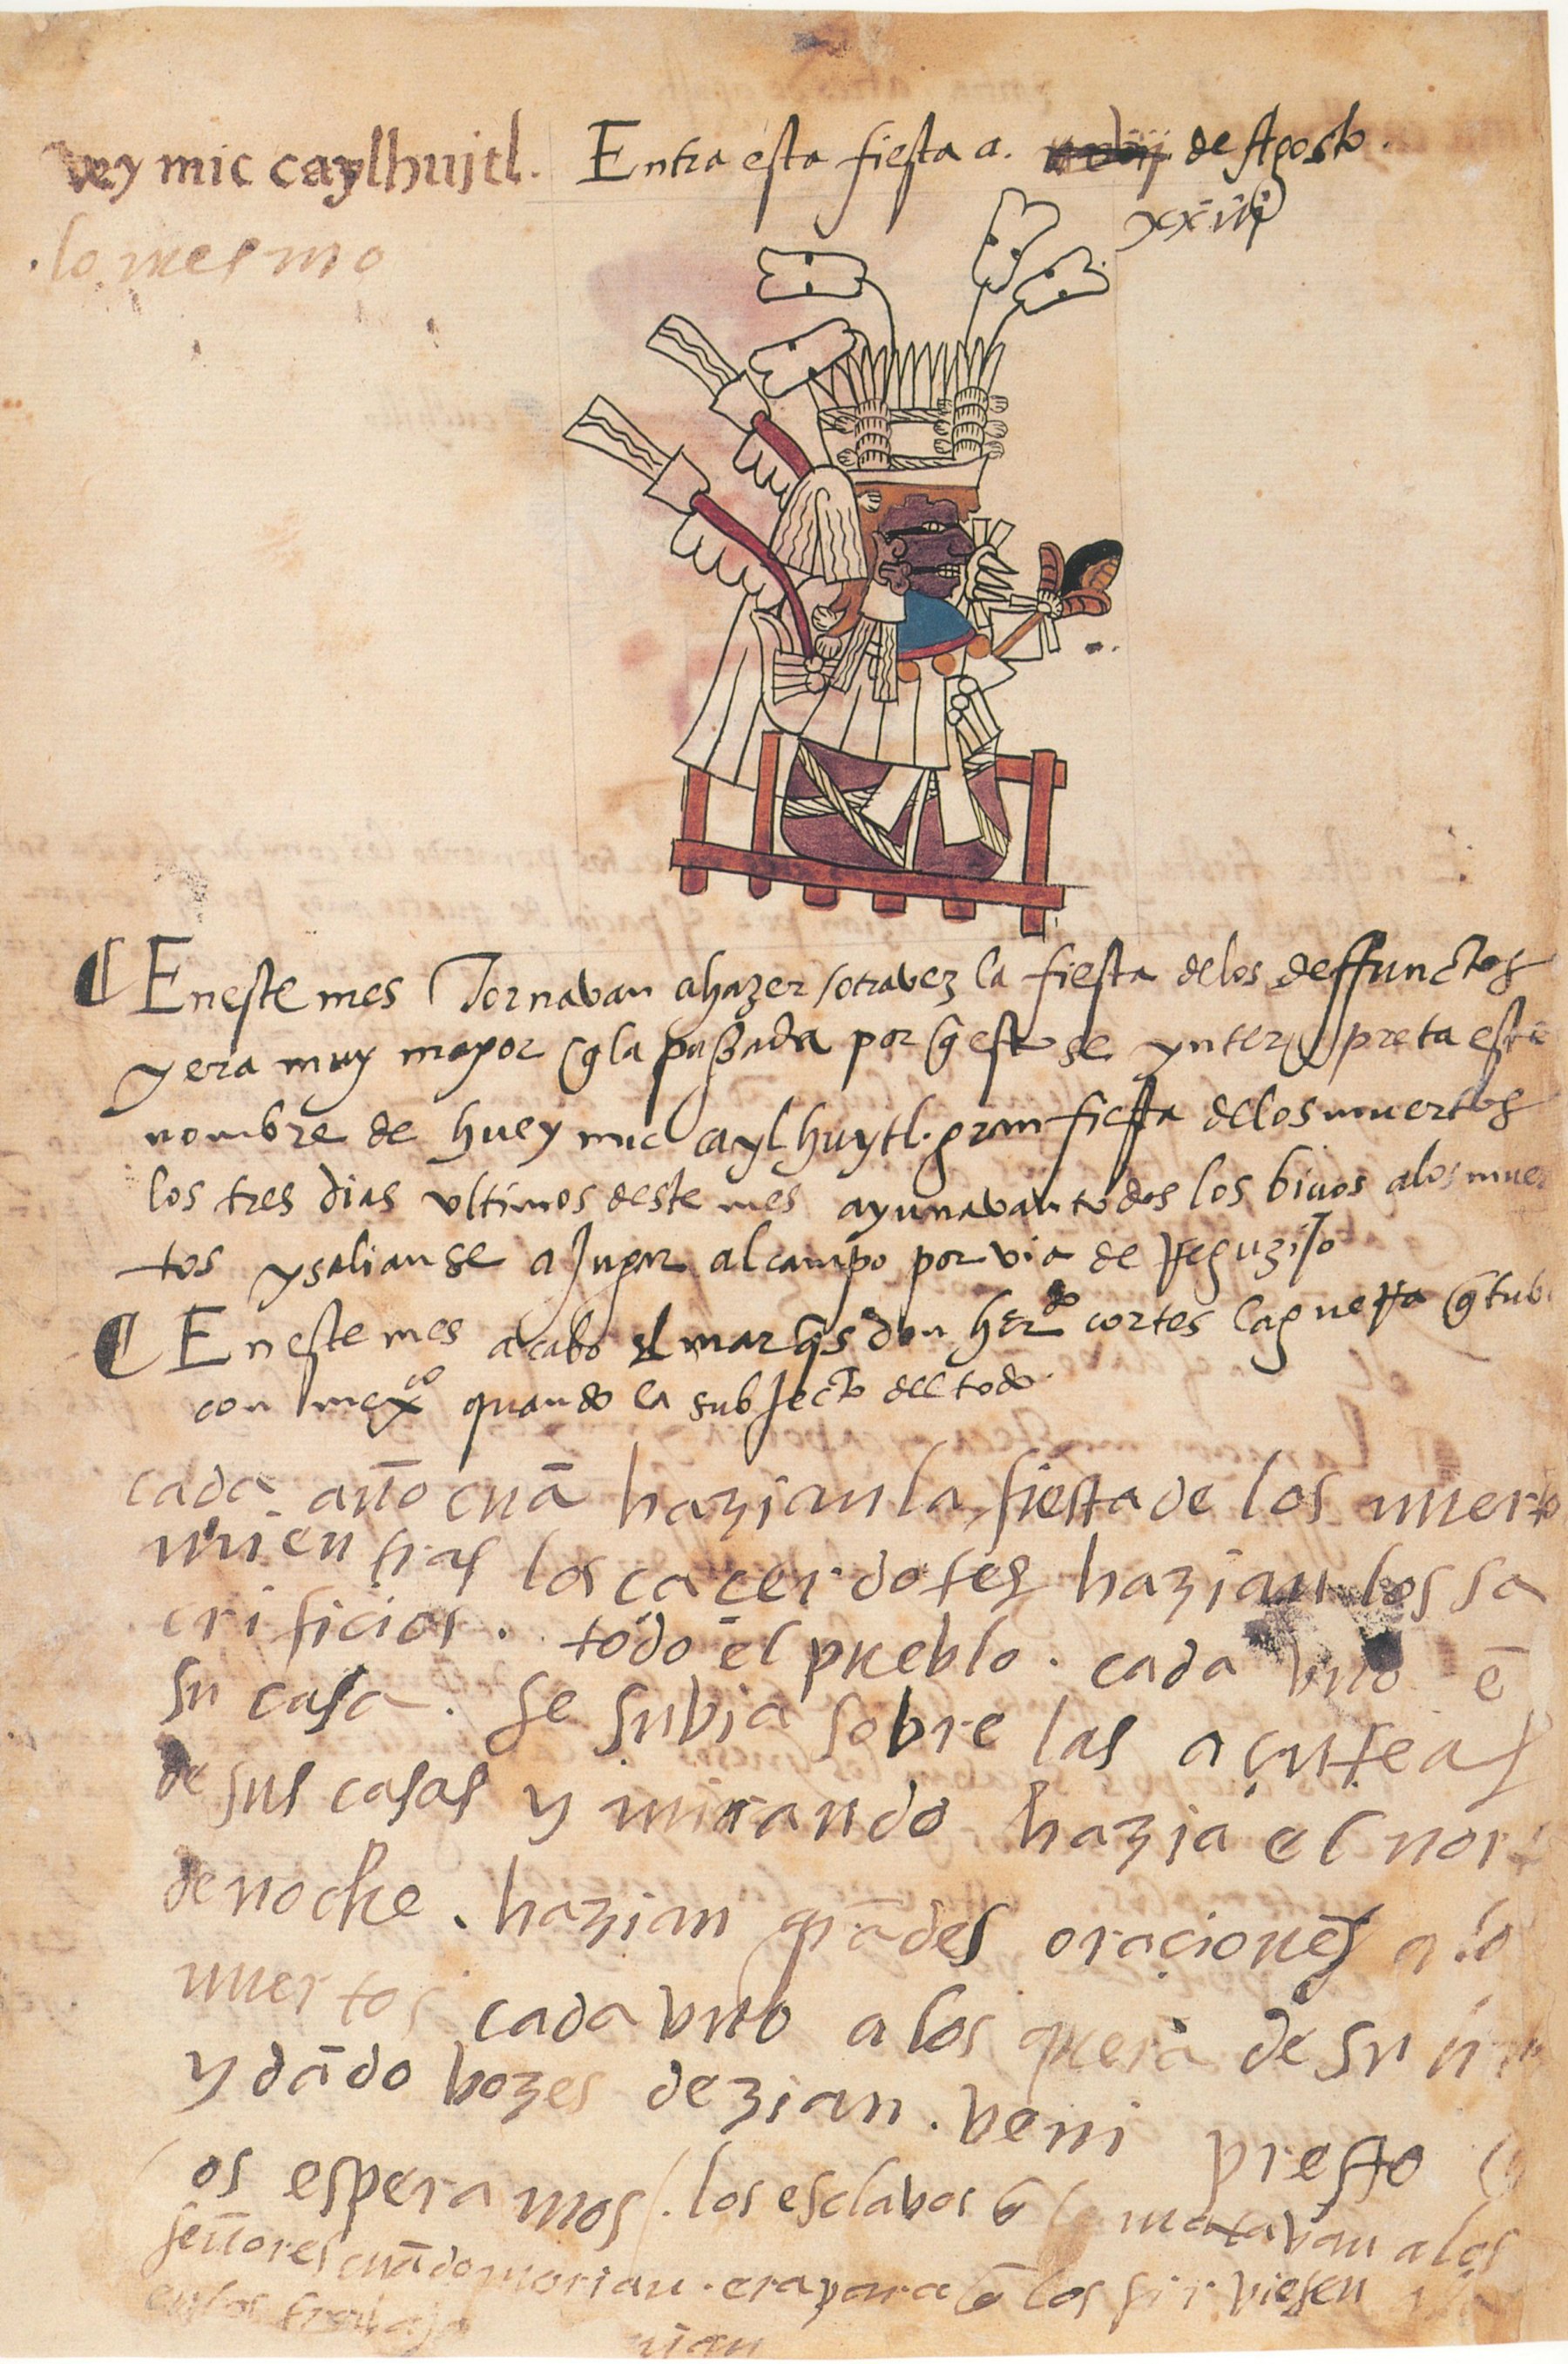 vey mic caylhuitl. Entra esta fiesta a. de Agosto.
xxiiij
.lo mesmo
En este mes Tornavan ahazer /otravez la fiesta delos deffunctos
yera muy mayor q̃ la passada por q̃ esto se ynterpreta este
nombre de huey mic caylhuytl. gran fiesta delos muertos
los tres dias ultimos deste mes ayunavan todos los bivos alos muer
tos ysalianse a Jugar al campo por via de Reguzijo
En este mes acabo el marq̃s don herdo cortes la guerra q̃ tubo
con mexco quando la subjecto del todo.
cada año cuã hazian la fiesta de los muerto
mientras los cacerdotes hazian los sa
crificios. todo el pueblo. cada uno ẽ
su casa. se subia sobre las açuteas
de sus casas y mirando hazia el nor
de noche. hazian grãdes oraciones a lo
muertos cada vno a los que erã de su
y dãdo bozes dezian. veni presto
os esperamos/. los esclavos q̃ matavan a los
señores cuãdo morian. era para q̃ los sirviesen
en los trabajo